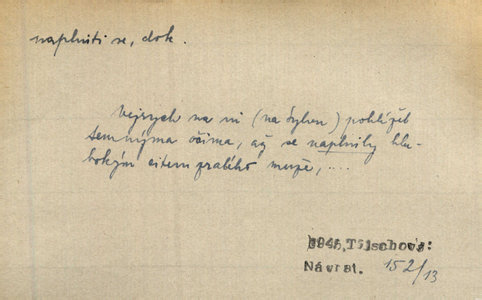 naplniti se, dok.
Vojtych na ni (na Sylvu) pohlížel
temnýma očima, až se naplnily hlu-
bokým citem zralého muže, ....
1946, Tilschová:
Návrat. 152/13